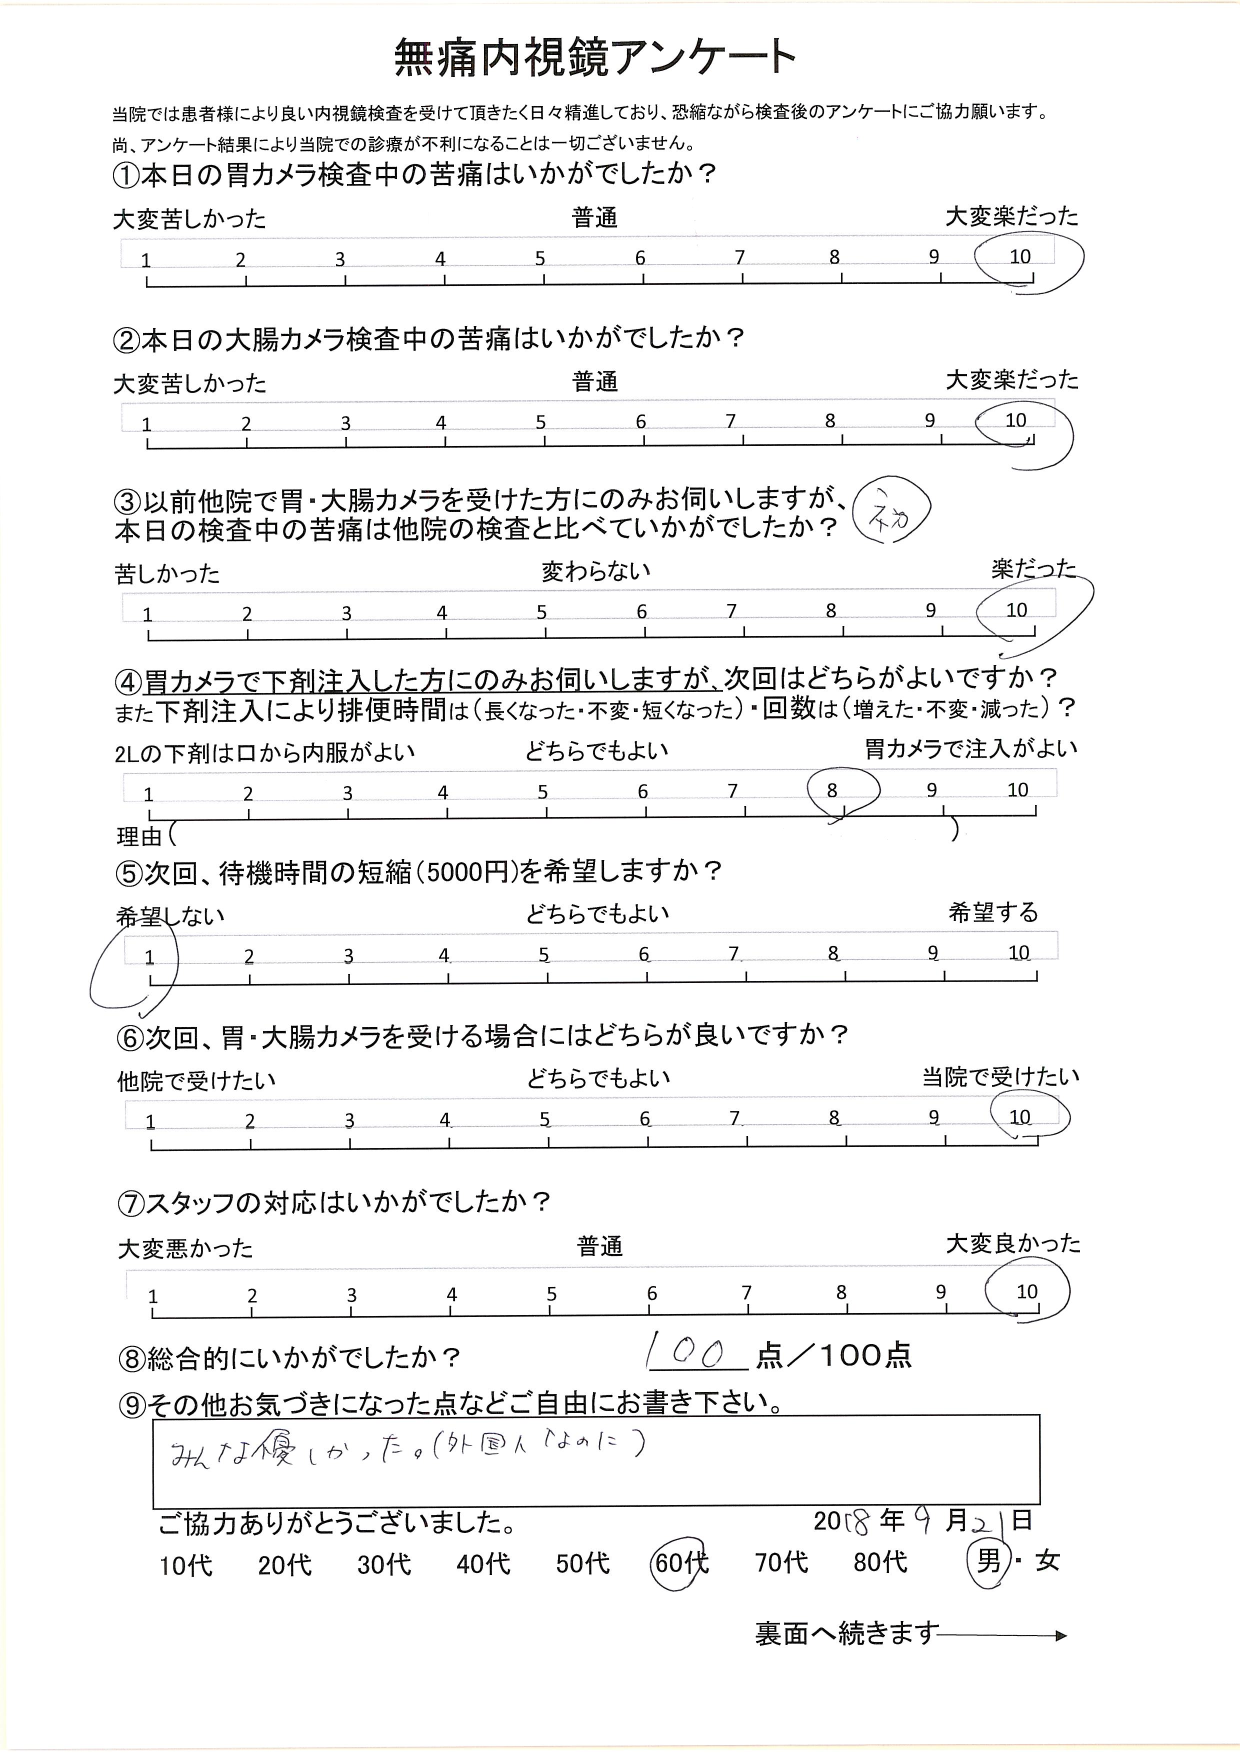 無痛内視鏡アンケート
当院では患者様により良い内視鏡検査を受けて頂きたく日々精進しており、恐縮ながら検査後のアンケートにご協力願います。
尚、アンケート結果により当院での診療が不利になることは一切ございません。
①本日の胃カメラ検査中の苦痛はいかがでしたか？
大変苦しかった 普通 大変楽だった
1 2 3 4 5 6 7 8 9 10
②本日の大腸カメラ検査中の苦痛はいかがでしたか？
大変苦しかった 普通 大変楽だった
1 2 3 4 5 6 7 8 9 10
③以前他院で胃・大腸カメラを受けた方にのみお伺いしますが、 初
本日の検査中の苦痛は他院の検査と比べていかがでしたか？
苦しかった 変わらない 楽だった
1 2 3 4 5 6 7 8 9 10
④胃カメラで下剤注入した方にのみお伺いしますが、次回はどちらがよいですか？
また下剤注入により排便時間は（長くなった・不変・短くなった）・回数は（増えた・不変・減った）？
2Lの下剤は口から内服がよい どちらでもよい 胃カメラで注入がよい
1 2 3 4 5 6 7 8 9 10
理由（ ）
⑤次回、待機時間の短縮（5000円）を希望しますか？
希望しない どちらでもよい 希望する
1 2 3 4 5 6 7 8 9 10
⑥次回、胃・大腸カメラを受ける場合にはどちらが良いですか？
他院で受けたい どちらでもよい 当院で受けたい
1 2 3 4 5 6 7 8 9 10
⑦スタッフの対応はいかがでしたか？
大変悪かった 普通 大変良かった
1 2 3 4 5 6 7 8 9 10
⑧総合的にいかがでしたか？ 100 点／100点
⑨その他お気づきになった点などご自由にお書き下さい。
みんな優しかった。(外国人なのに)
ご協力ありがとうございました。 2018年9月21日
10代 20代 30代 40代 50代 60代 70代 80代 男・女
裏面へ続きます